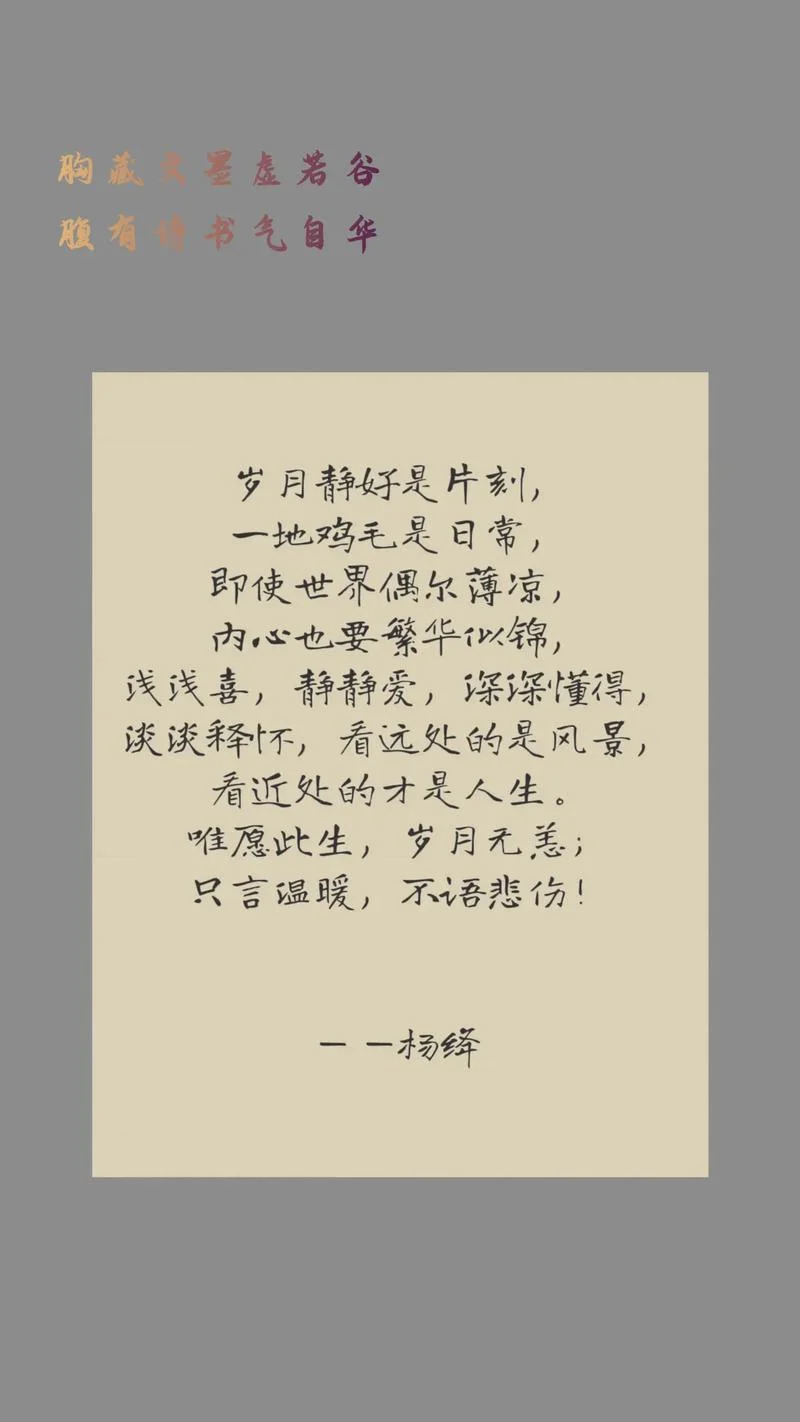 胸藏文墨虚若谷
腹有诗书气自华
岁月静好是片刻,
一地鸡毛是日常,
即使世界偶尔薄凉,
内心也要繁华似锦,
浅浅喜，静静爱，深深懂得,
淡淡释怀，看远处的是风景,
看近处的才是人生。
唯愿此生，岁月无恙;
只言温暖，不语悲伤!
一 一杨绛